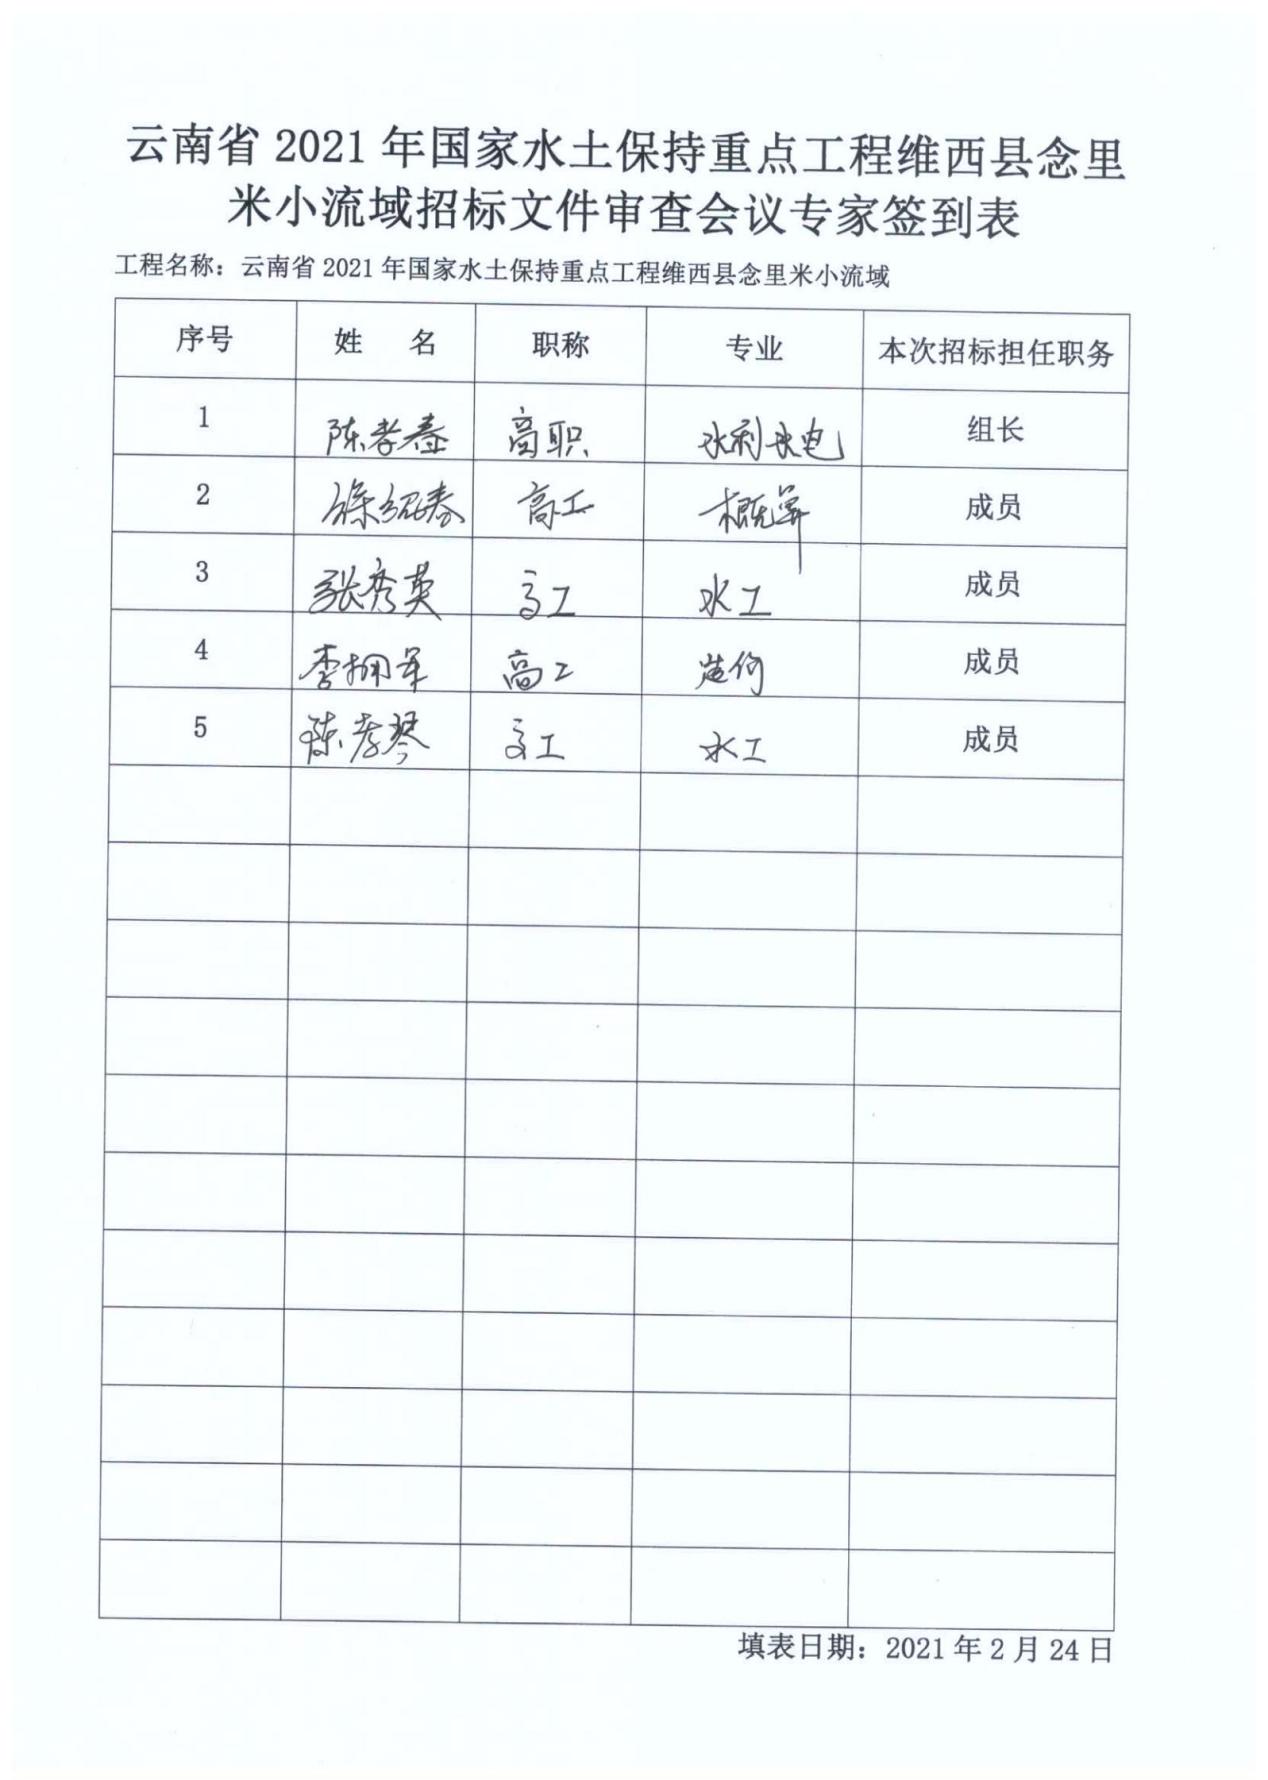 云南省 2021 年国家水土保持重点工程维西县念里
米小流域招标文件审查会议专家签到表
工程名称：云南省 2021 年国家水土保持重点工程维西县念里米小流域
序号 姓 名 职称 专业 本次招标担任职务
1 陈孝春 高职 水利水电 组长
2 徐绍春 高工 概算 成员
3 张秀英 高工 水工 成员
4 李拥军 高工 造价 成员
5 陈孝琴 高工 水工 成员
填表日期：2021 年 2 月 24 日